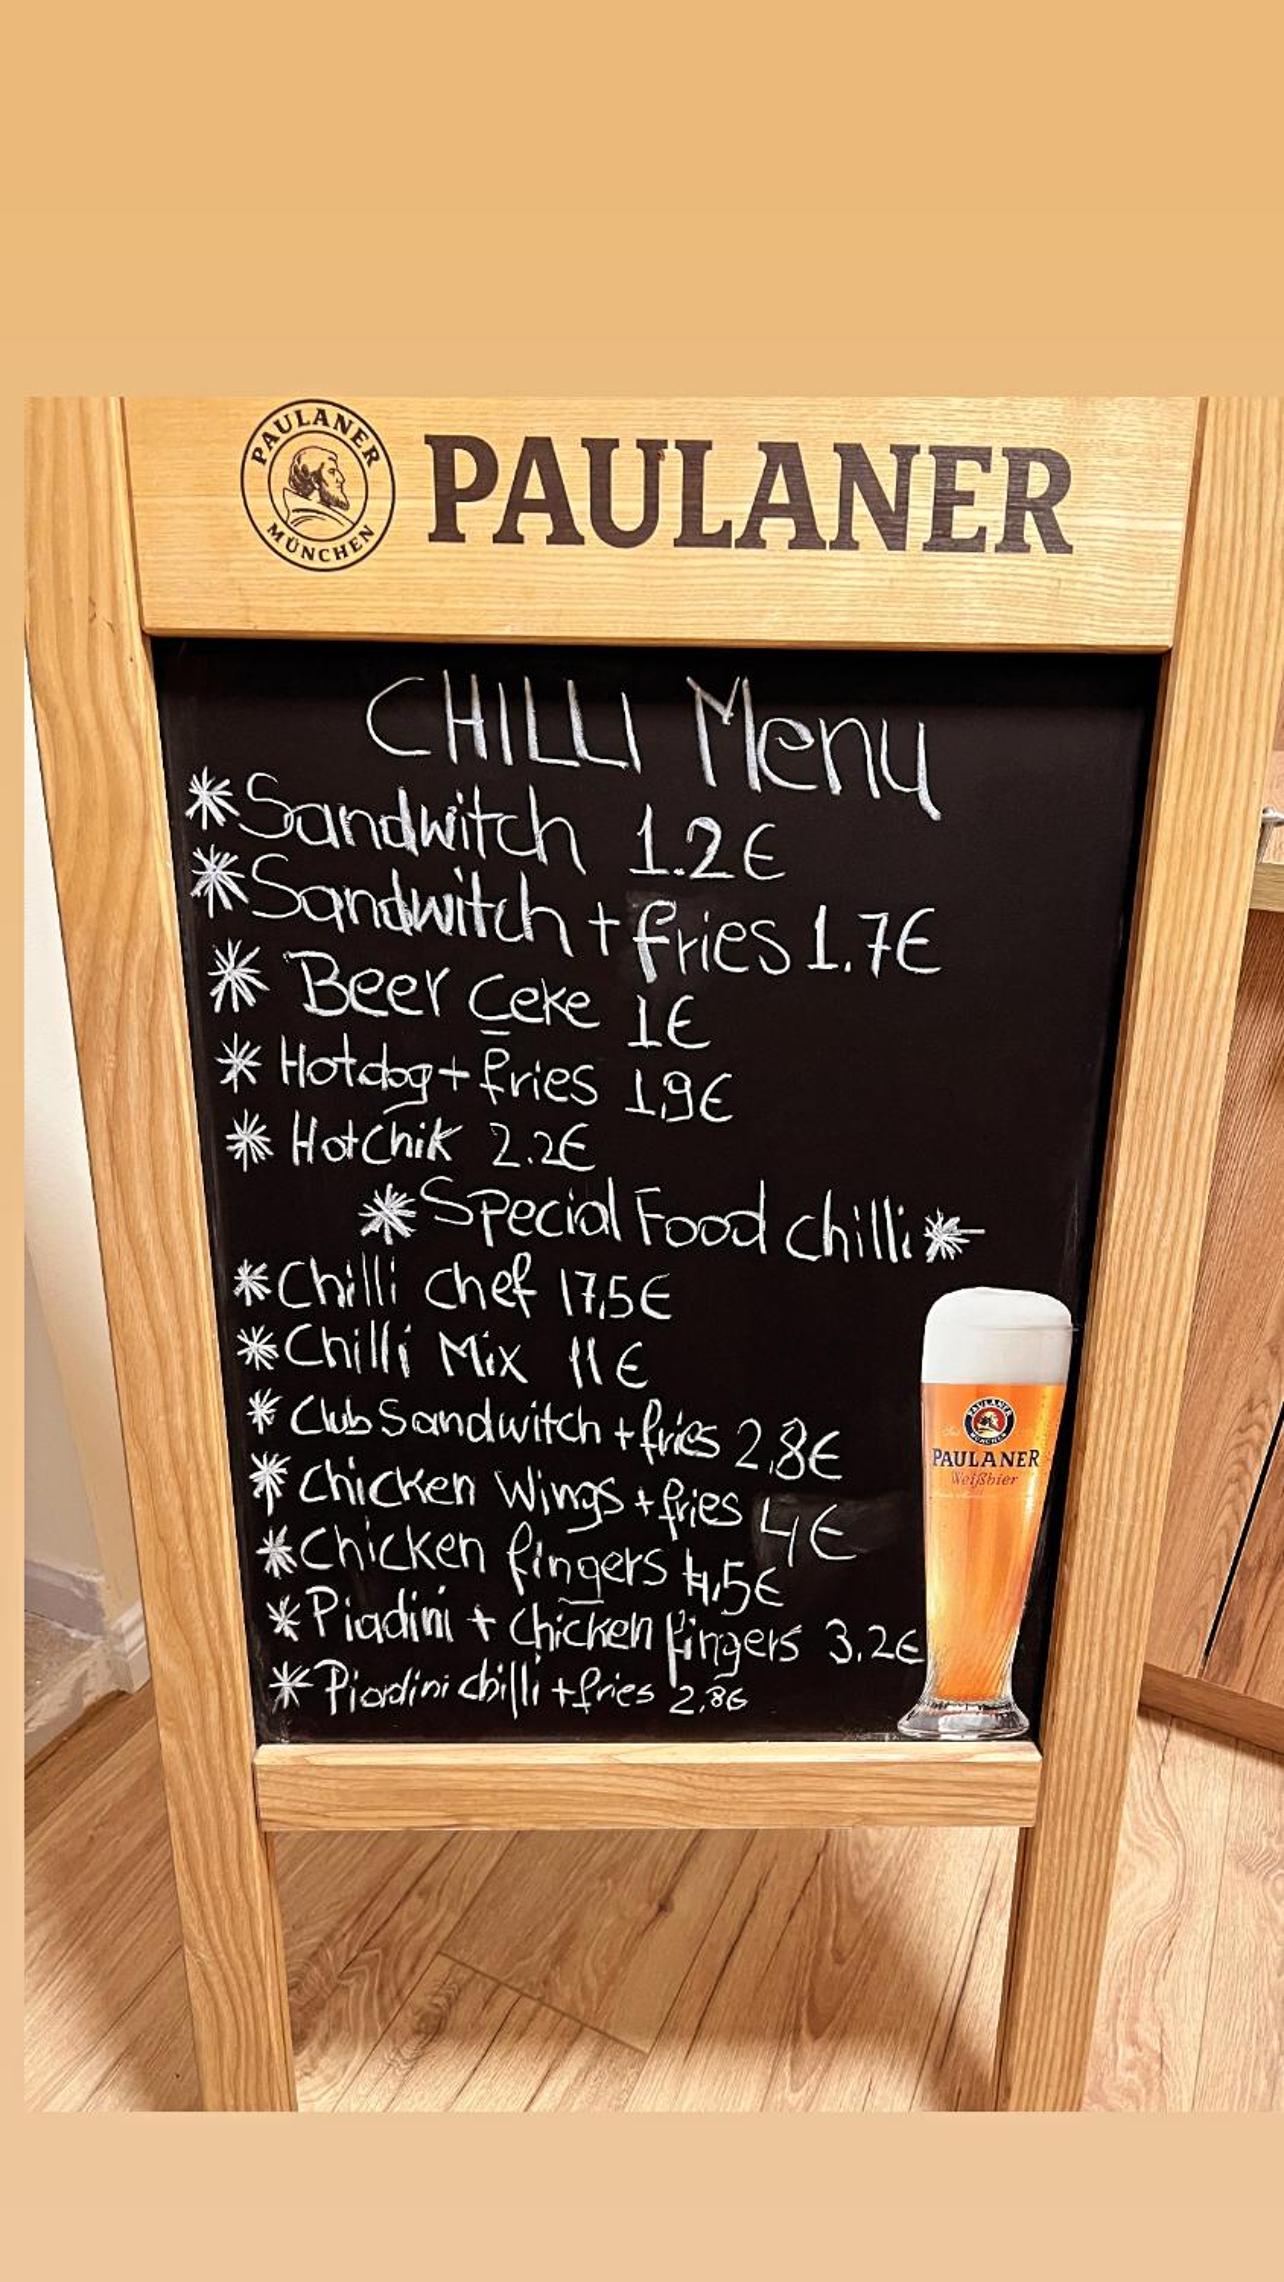 PAULANER
MÜNCHEN
PAULANER
CHILLI Menu
*Sandwitch 1.2€
*Sandwitch + fries 1.7€
* Beer çeke 1€
* Hotdog + fries 1,9€
* HotChik 2.2€
*Special Food chilli*
*Chilli chef 17,5€
*Chilli Mix 11€
* Club Sandwitch + fries 2,8€
* Chicken Wings + fries 4€
*Chicken fingers 4,5€
*Piadini + chicken fingers 3.2€
* Piadini chilli + fries 2,8€
PAULANER
MÜNCHEN
PAULANER
Weißbier